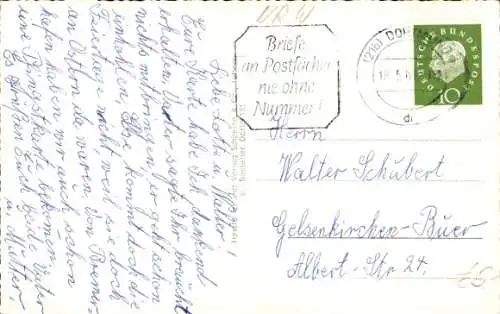 Liebe Lotte u. Walter!
Eure Karte habe ich dankend
erhalten. Vater sagte Ihr braucht
nichts mitbringen, er geht schon
einholen, Else kommt doch die
Feiertage nicht, weil sie doch
an Ostern da waren. Von Bremer-
hafen haben wir auch schon
eine Ansichtskarte bekommen.
Es grüßen Euch beide Vater
u. Mutter.
Briefe
an Postfächer
nie ohne
Nummer!
DEUTSCHE BUNDESPOST
10
Herrn
Walter Schubert
Gelsenkirchen-Buer
Albert-Str 24.